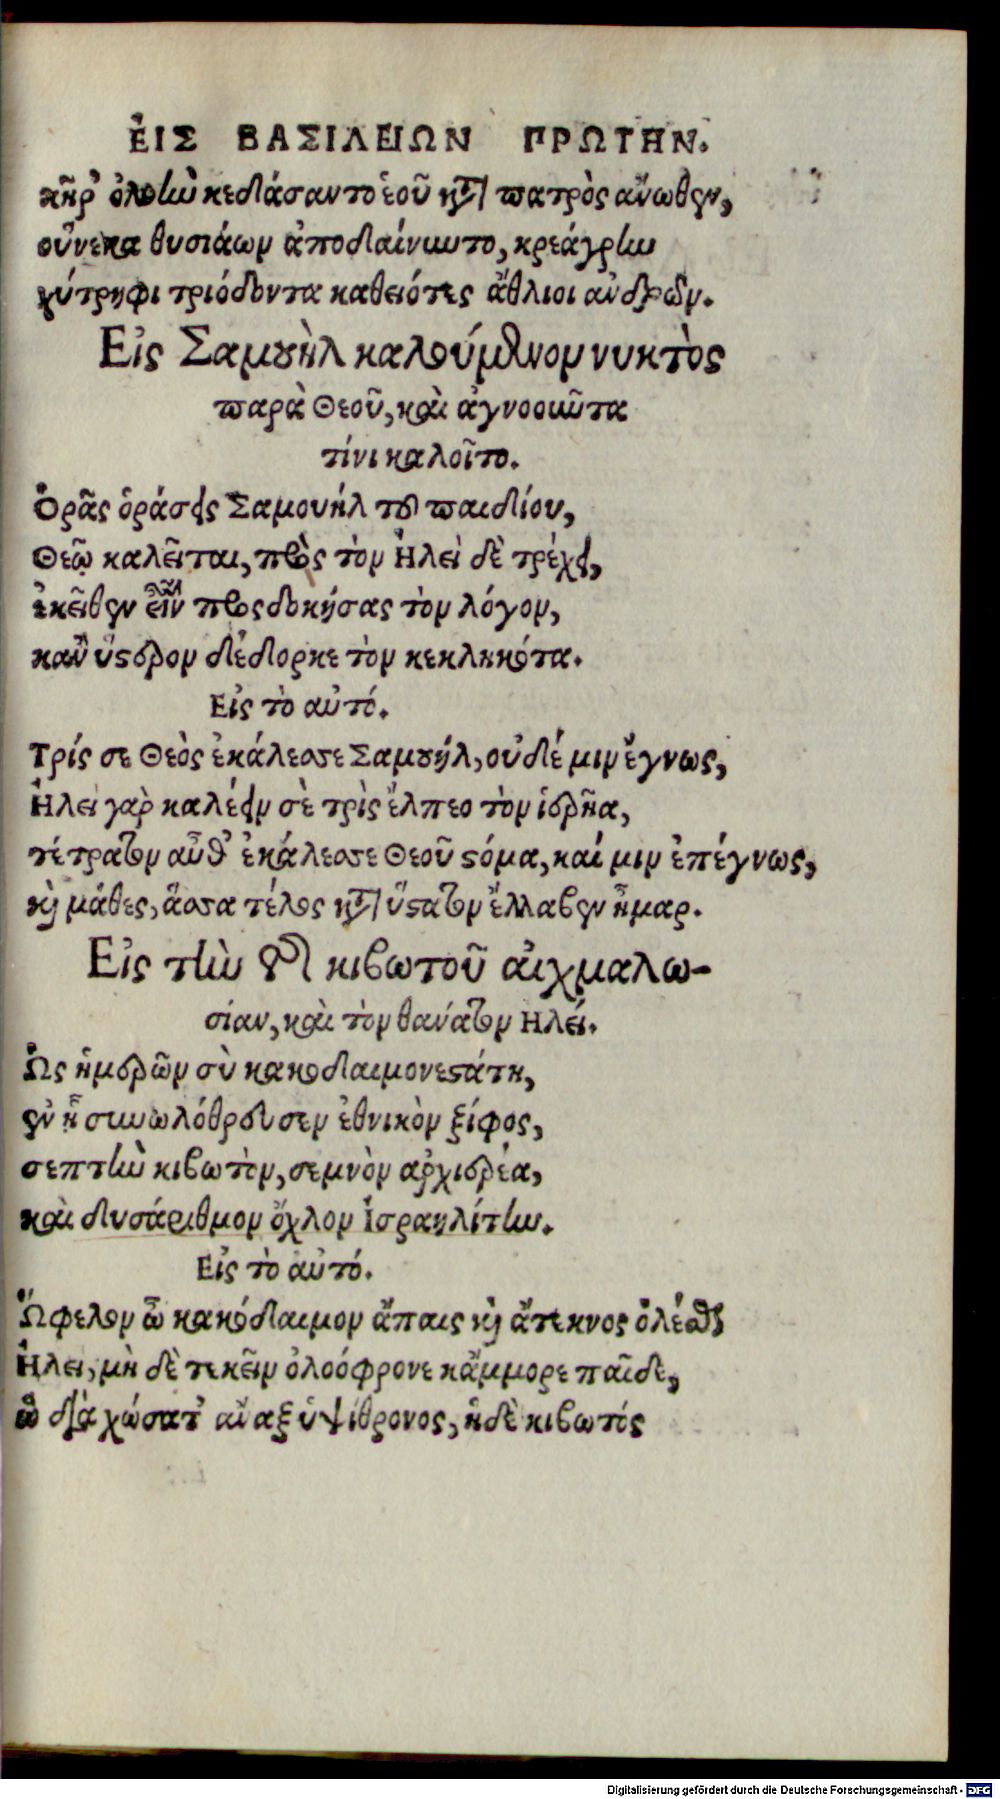 ἘΙΣ ΒΑΣΙΛΕΙΩΝ ΠΡΩΤΗΝ.
κῆρ' ὀλοὴν κεδιάσαντο ἑοῦ κατὰ πατρὸς ἄνωθεν,
οὕνεκα θυσιάων ἀποδιαίνυντο, κρεάγρην
χύτρηφι τριόδοντα καθειότες ἄθλιοι ἀνδρῶν.
Εἰς Σαμουὴλ καλούμενον νυκτὸς
παρὰ Θεοῦ, καὶ ἀγνοοῦντα
τίνι καλοῖτο.
Ὁρᾷς ὁράσεις Σαμουήλ τοῦ παιδίου,
Θεῷ καλεῖται, πρὸς τὸν Ἠλεὶ δὲ τρέχει,
ἐκεῖθεν εἶναι προσδοκήσας τὸν λόγον,
κἂν ὕστερον διέδιορκε τὸν κεκληκότα.
Εἰς τὸ αὐτό.
Τρίς σε Θεὸς ἐκάλεσσε Σαμουήλ, οὐδέ μιν ἔγνως,
Ἠλεὶ γὰρ καλέειν σὲ τρὶς ἔλπεο τὸν ἱερῆα,
τέτρατον αὖθ' ἐκάλεσσε Θεοῦ στόμα, καί μιν ἐπέγνως,
καὶ μάθες, ἅσσα τέλος κατὰ ὕστατον ἔλλαβεν ἦμαρ.
Εἰς τὴν τῆς κιβωτοῦ αἰχμαλω-
σίαν, καὶ τὸν θάνατον Ἠλεί.
Ὡς ἡμερῶν σὺ κακοδαιμονεστάτη,
ἐν ᾗ συνωλόθρευσεν ἐθνικὸν ξίφος,
σεπτὴν κιβωτὸν, σεμνὸν ἀρχιερέα,
καὶ δυσάριθμον ὄχλον Ἰσραηλίτην.
Εἰς τὸ αὐτό.
Ὤφελον ὦ κακόδαιμον ἄπαις καὶ ἄτεκνος ὀλέσθαι
Ἠλει, μὴ δὲ τεκεῖν ὀλοόφρονε κάμμορε παῖδε,
ὧ διὰ χώσατ' ἄναξ ὑψίθρονος, ἠδὲ κιβωτός
Digitalisierung gefördert durch die Deutsche Forschungsgemeinschaft - DFG